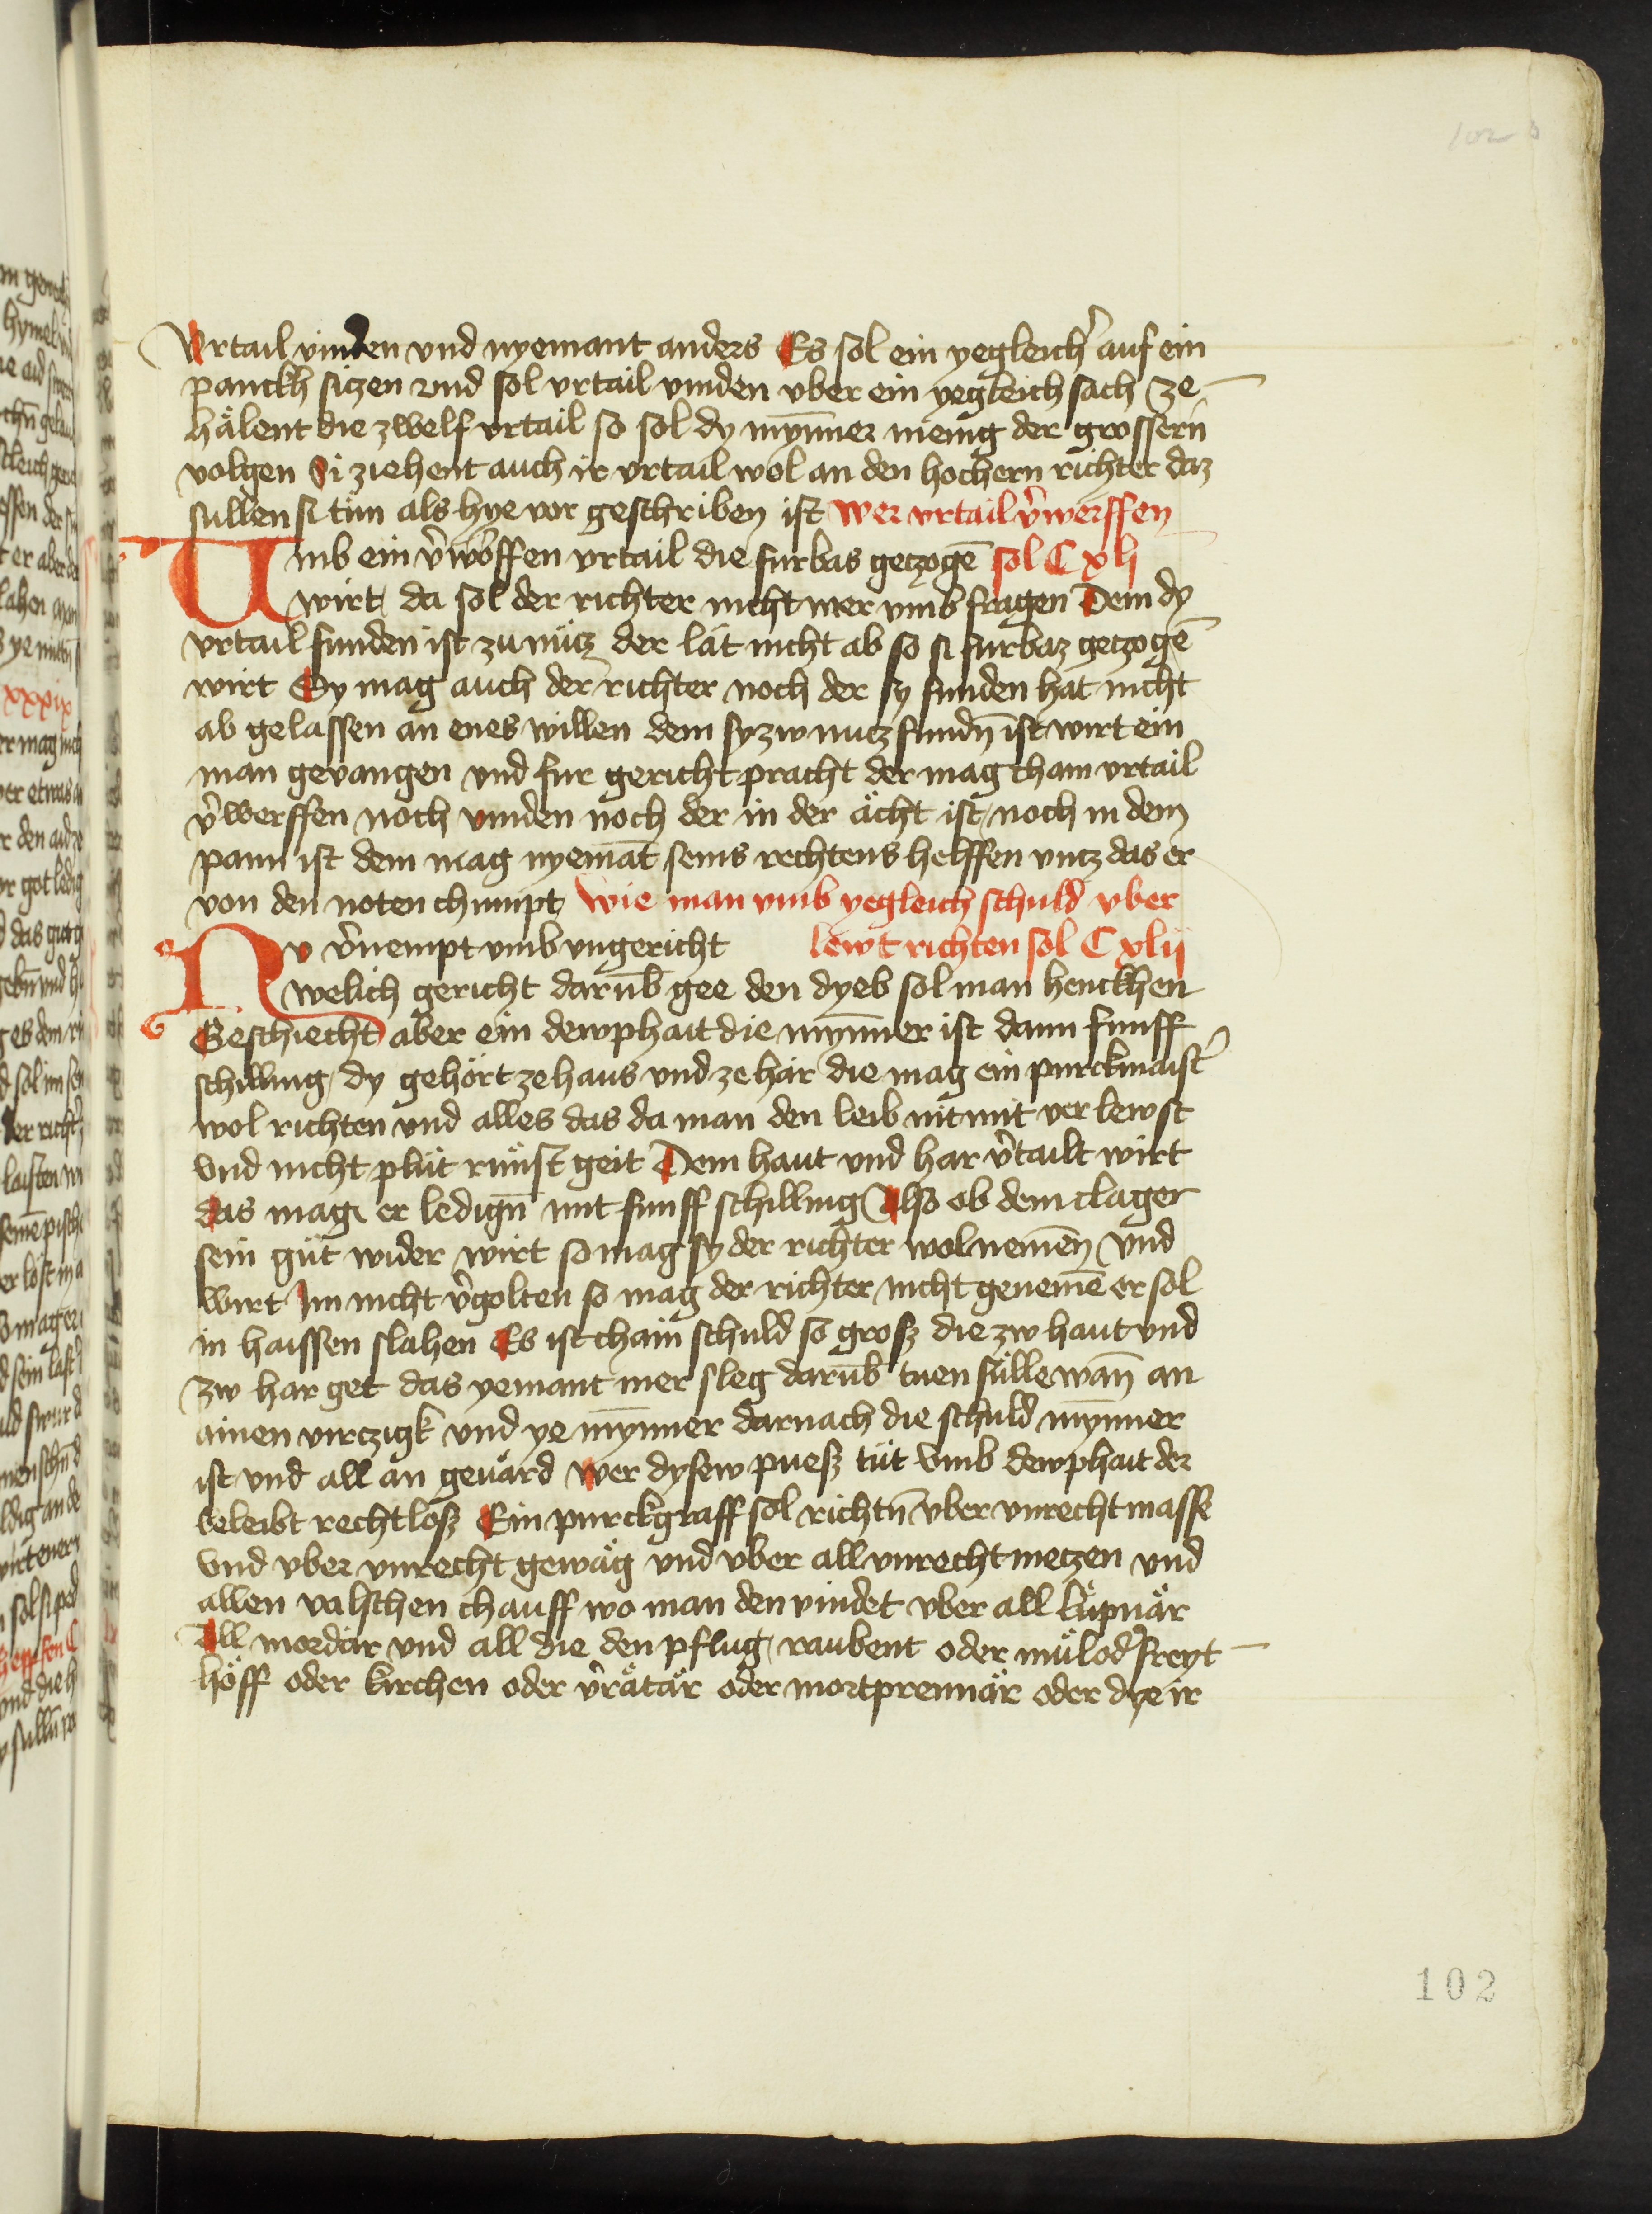 102
Vrtail vinden vnd nyemant anders Es sol ein yegleich̉ auf ein
panckh sitzen vnd sol vrtail vinden vber ein yegleich sach ze
hålent die zwelf vrtail so sol dy mȳnner menig der grossern̄
volgen Si ziehent auch ir vrtail wol an den hochern richter daz
sullen si tún als hye vor geschriben ist Wer vrtail v̉werffen
Umb ein v̉woͤrffen vrtail die furbas getzogē sol C xli
wirt da sol der richter nicht mer vmb fragen Dem dy
vrtail funden ist zu nütz der låt nicht ab so si furbaz getzogē
wirt Sy mag auch der richter noch der sy funden hat nicht
ab gelassen an enes willen dem sy zw nutz fundn̄ ist wirt ein
man gevangen vnd fur gericht pracht der mag cham vrtail
v̉werffen noch vinden noch der in der ächt ist noch in dem
pann ist dem mag nyemāt seins rechtens helffen vntz das er
von den noten chumpt Wie man vmb yegleich schuld vber
Nv v̉nempt vmb vngericht lewt richten sol C xlii
welich gericht darūb gee den dyeb sol man henckhen
Geschiecht aber ein dewphait die mȳnner ist dann funff
schilling dy gehört ze haus vnd ze här die mag ein purckmaist̉
wol richten vnd alles das da man den leib nit mit ver lewst
vnd nicht plüt rünst geit Dem haut vnd har v̉tailt wirt
das mag er ledign̄ mit funff schilling Also ob dem clager
sein güt wider wirt so mag sy der richter wol nemen̄ vnd
wirt Im nicht v̉golten so mag der richter nicht genemē er sol
in haissen slahen Es ist chain schuld so grosz die zw haut vnd
zw har get das yemant mer sleg darūb tuen sülle wan̄ an
ainen virczigk vnd ye mȳnner darnach die schuld mȳnner
ist vnd all an geuård Wer dysew puesz tüt vmb dewphait der
beleibt rechtlosz Ein purckgraff sol richtn̄ vber vnrecht massz
vnd vber vnrecht gewåg vnd vber all vnrecht metzen vnd
allen valschen chauff wo man den vindet vber all lüpnär
All mordär vnd all die den pflug raubent oder mül od̉ freyt
höff oder kirchen oder v̉råtår oder mortprennår oder dye ir
102